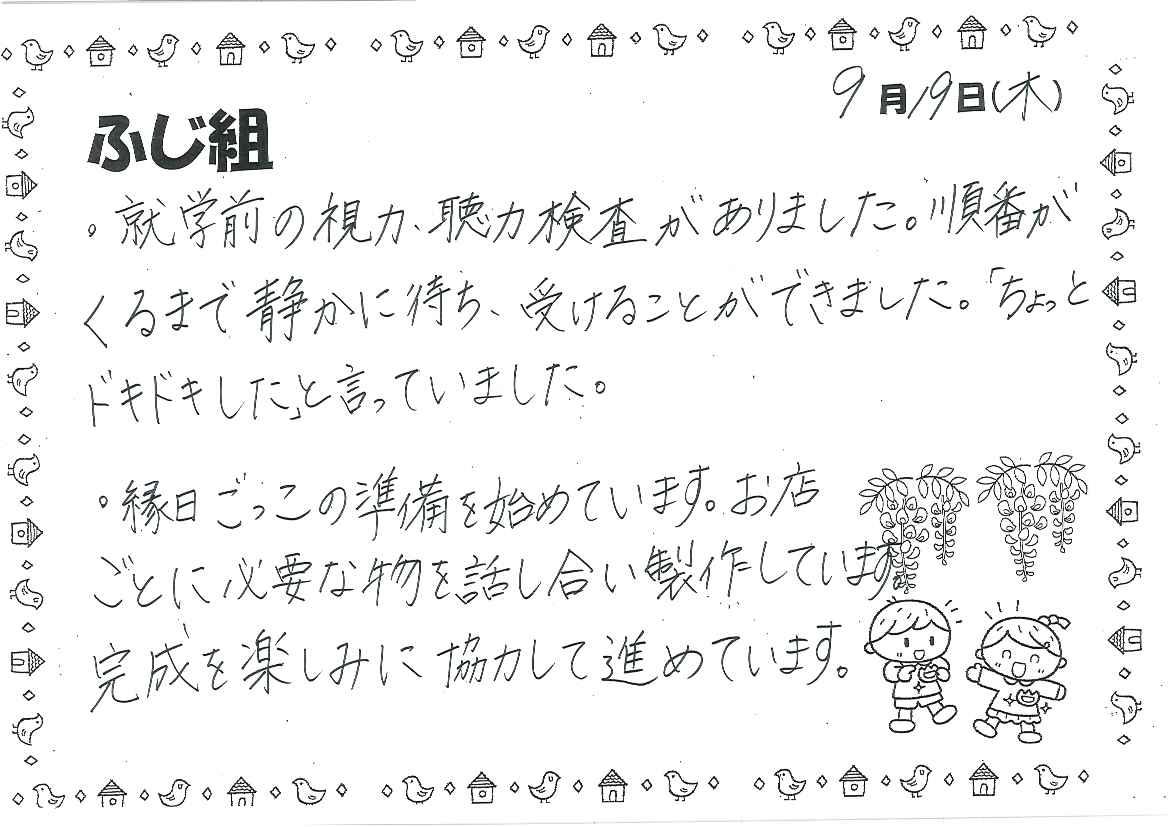 9月19日(木)
ふじ組
。就学前の視力、聴力検査がありました。順番が
くるまで静かに待ち、受けることができました。「ちょっと
ドキドキした」と言っていました。
。縁日ごっこの準備を始めています。お店
ごとに必要な物を話し合い製作しています。
完成を楽しみに協力して進めています。